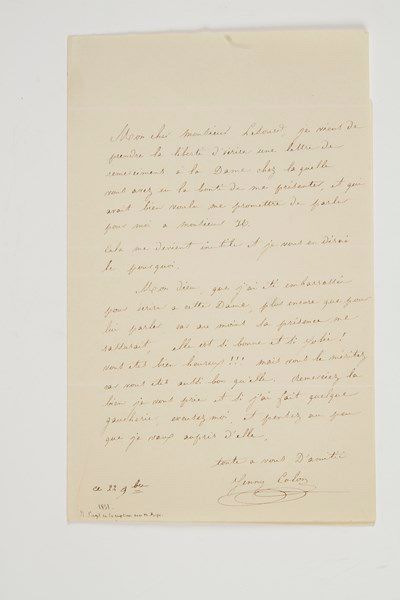 Mon cher monsieur je viens de
prendre la liberté d'écrire une lettre de
remerciment à la Dame chez laquelle
vous avez eu la bonté de me présenter, et qui
avait bien voulu me promettre de parler
pour moi a monsieur
Cela me devient inutile et je vous en dirai
le pourquoi.
Mon dieu, que j'ai été embarrassée
pour écrire a cette Dame, plus encore que pour
lui parler car au moins sa présence me
rassurait, elle est si bonne et si jolie!
vous êtes bien heureux!!! mais vous le méritez
car vous êtes aussi bon qu'elle. remerciez la
bien je vous prie et si j'ai fait quelque
gaucherie, excusez moi et pensez au peu
que je vaux auprès d'elle.
toute a vous D'amitié
Jenny Colon
ce 22 9bre
1831.